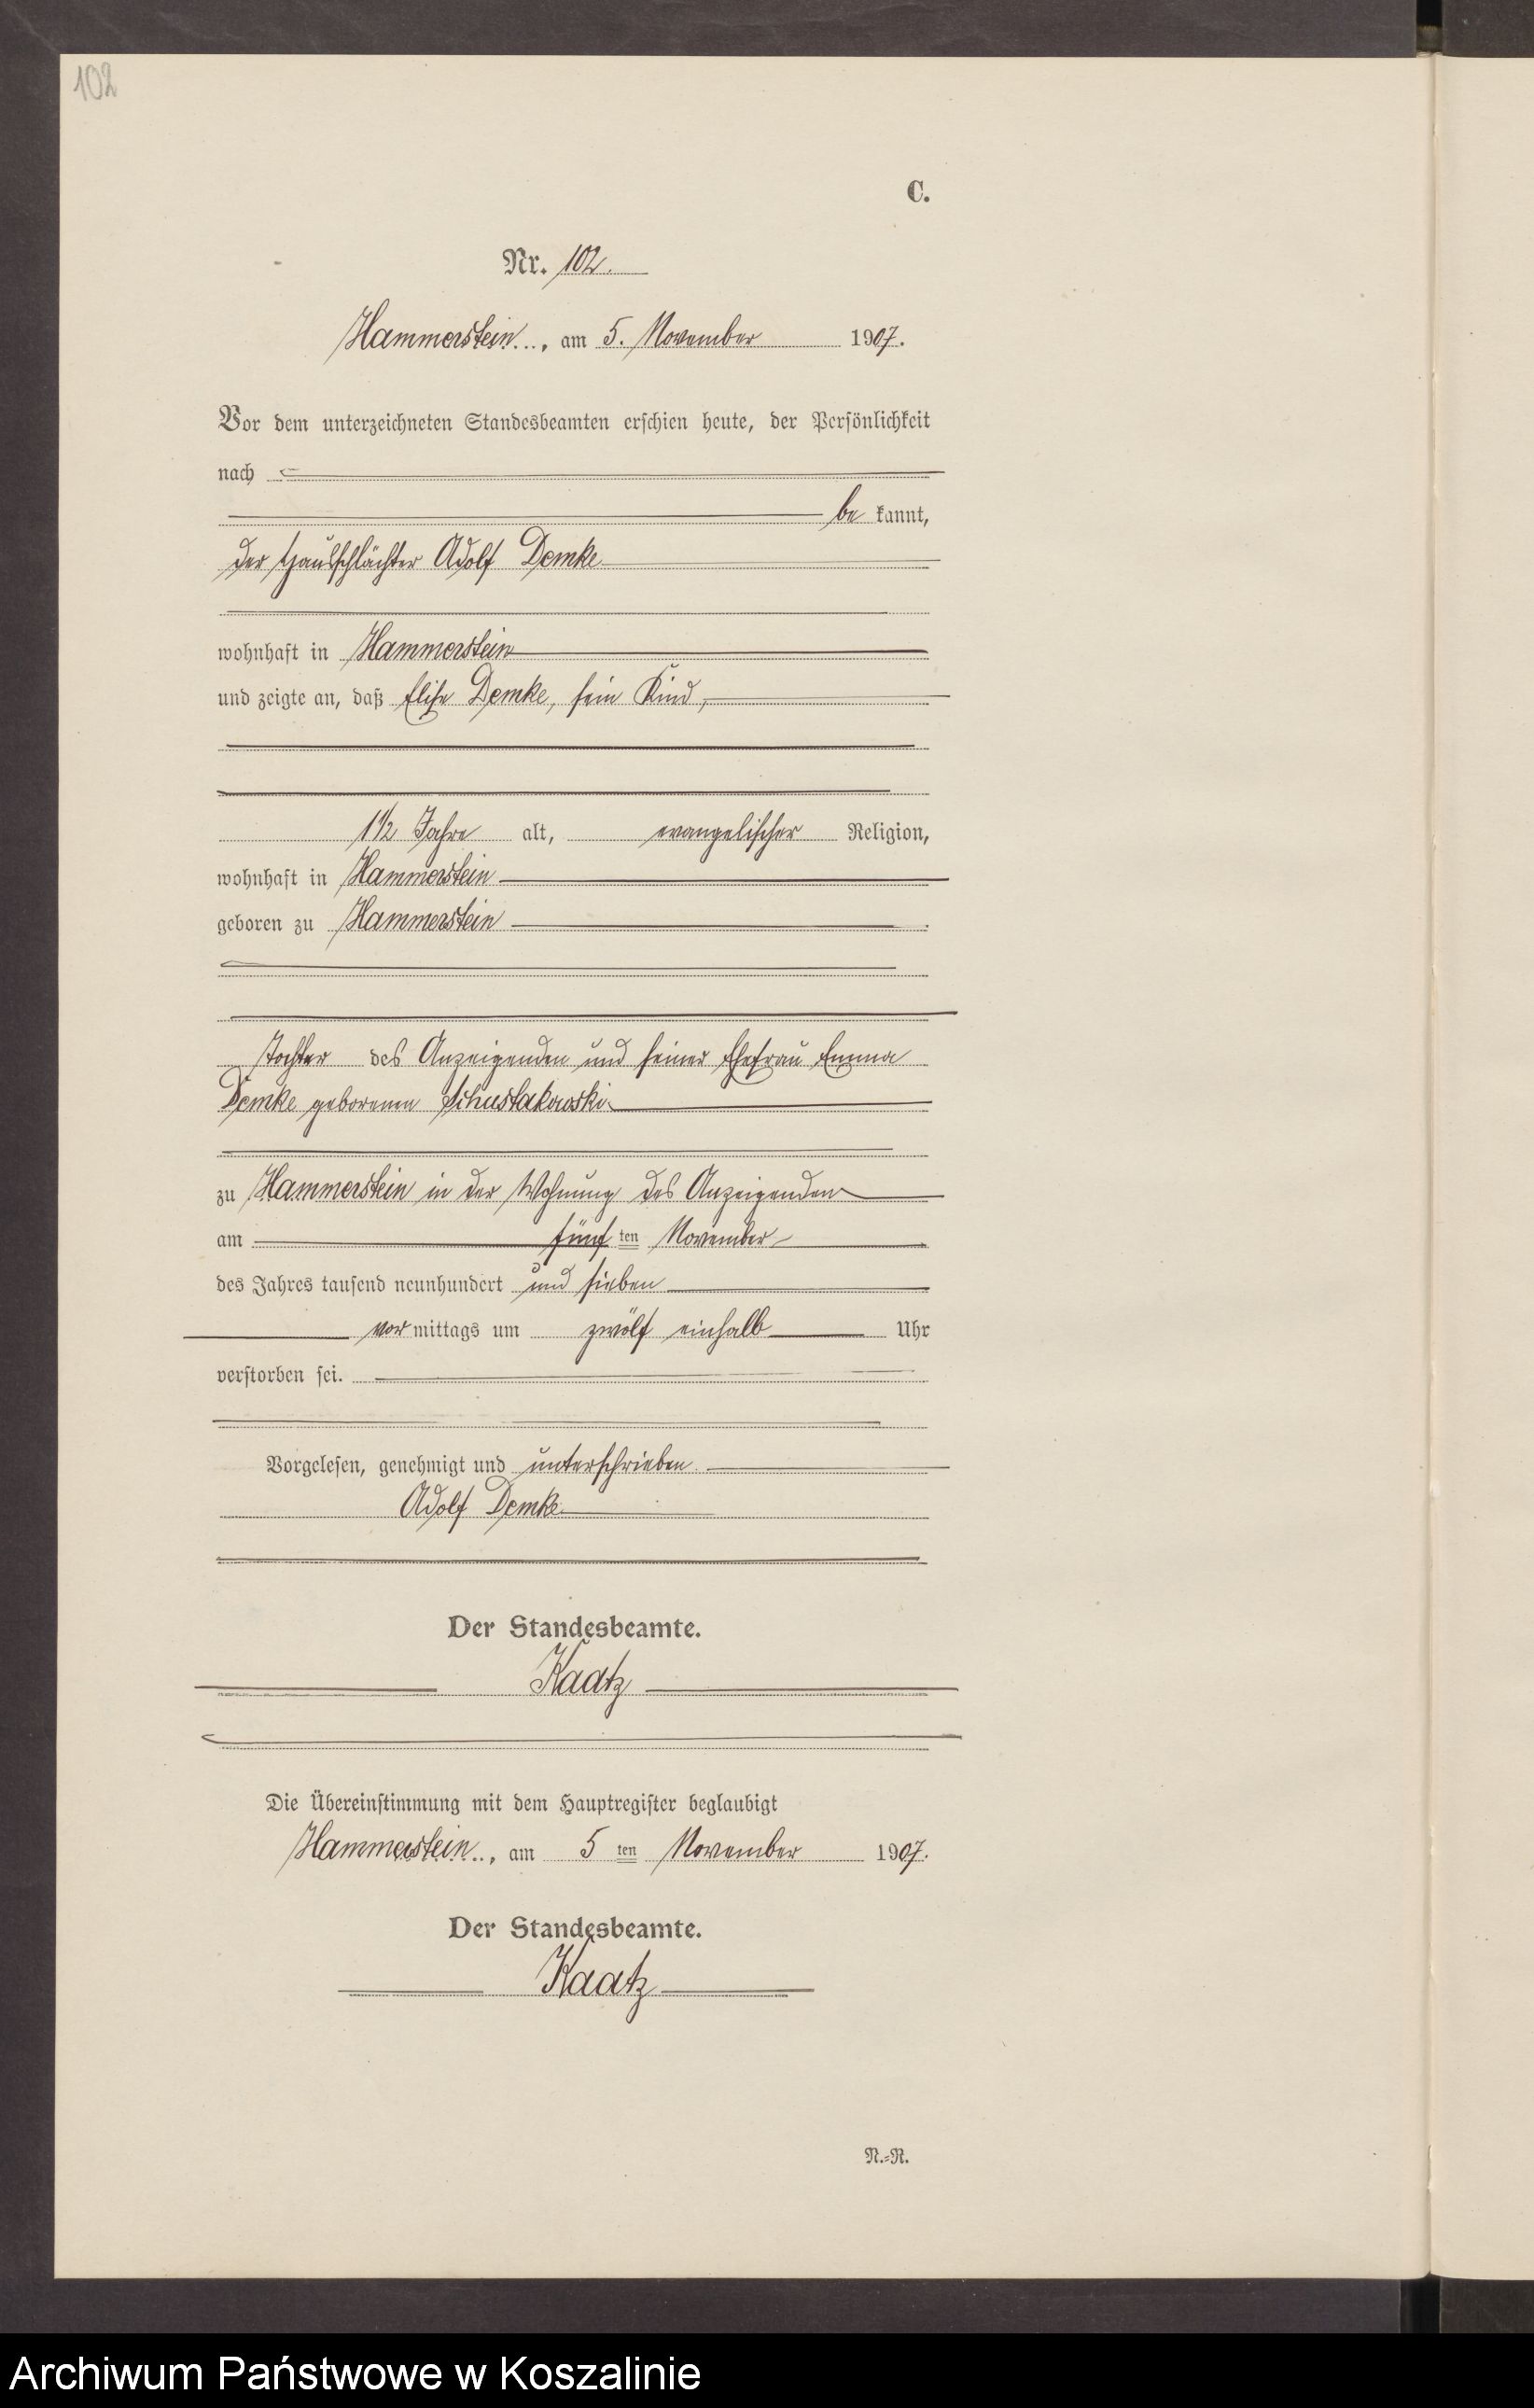 102
C.
Nr. 102.
Hammerstein..., am 5. November 1907.
Vor dem unterzeichneten Standesbeamten erschien heute, der Persönlichkeit
nach
be kannt,
der Hausschlächter Adolf Demke
wohnhaft in Hammerstein
und zeigte an, daß Elise Demke, sein Kind,
1½ Jahre alt, evangelischer Religion,
wohnhaft in Hammerstein
geboren zu Hammerstein
Tochter des Anzeigenden und seiner Ehefrau Emma
Demke geborenen Schustakowski
zu Hammerstein in der Wohnung des Anzeigenden
am fünf ten November
des Jahres tausend neunhundert und sieben
vor mittags um zwölf einhalb Uhr
verstorben sei.
Vorgelesen, genehmigt und unterschrieben.
Adolf Demke
Der Standesbeamte.
Kaatz
Die Übereinstimmung mit dem Hauptregister beglaubigt
Hammerstein.., am 5 ten November 1907.
Der Standesbeamte.
Kaatz
N.=R.
Archiwum Państwowe w Koszalinie